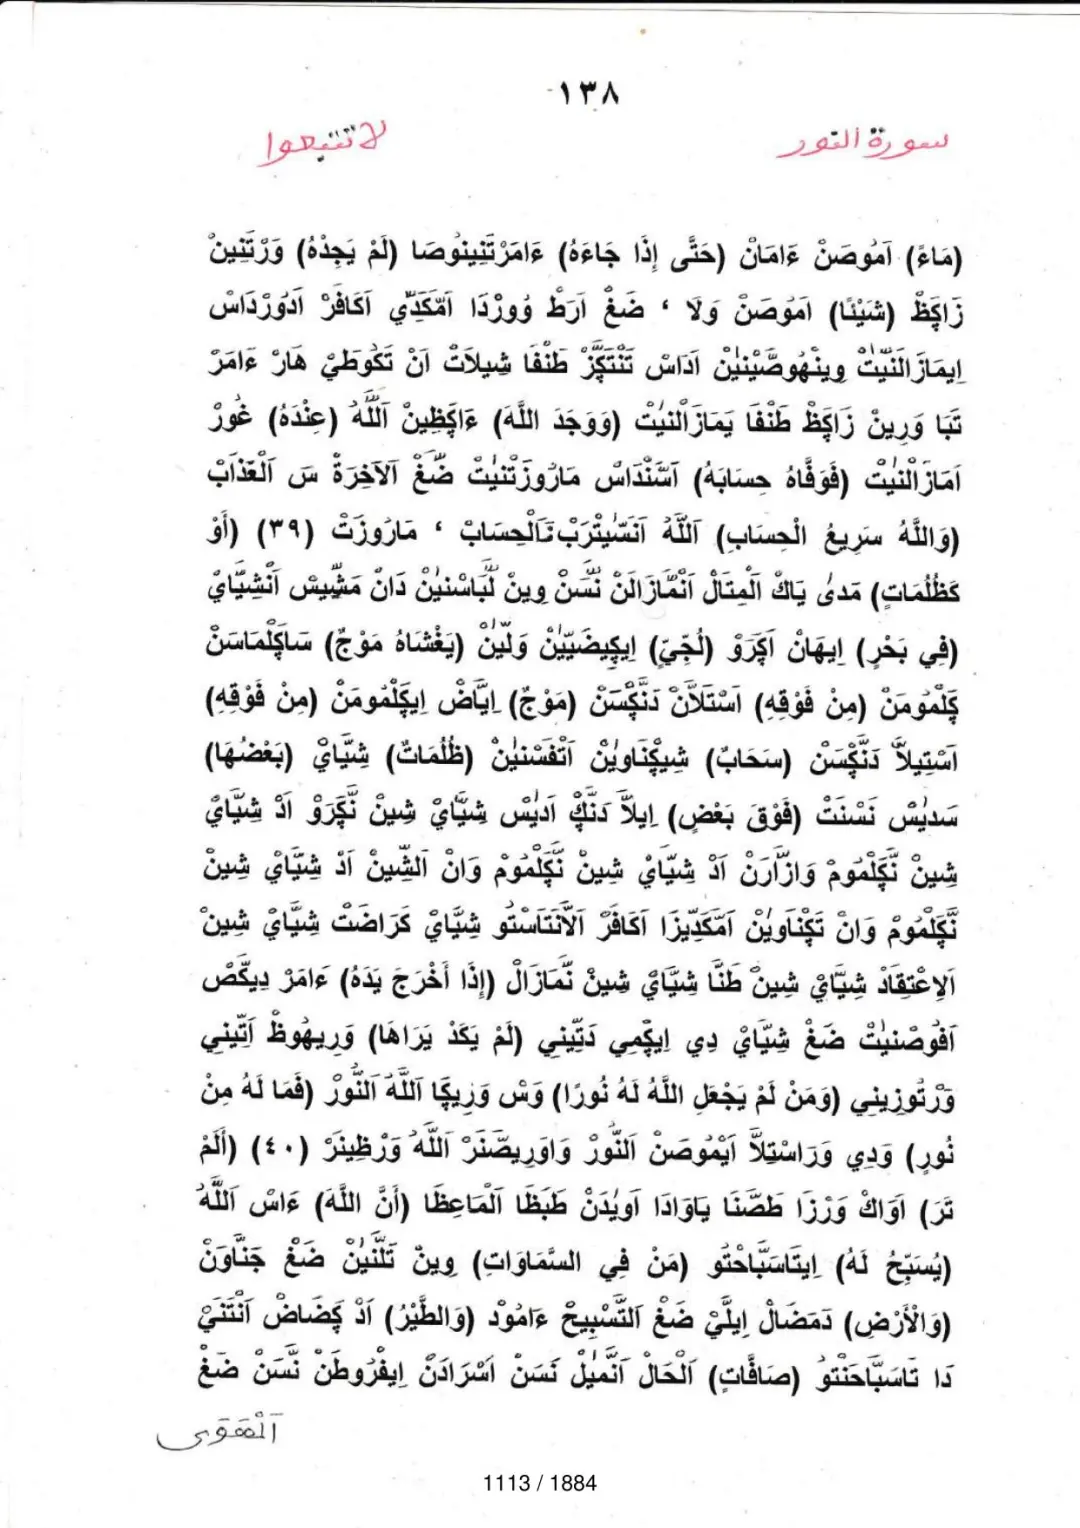 ١٣٨
سورة النور
لا تتبعوا
(مَاءً) اَمُوصَنْ ءَامَانْ (حَتَّى إِذَا جَاءَهُ) ءَامَرْتَنِينُوصَا (لَمْ يَجِدْهُ) وَرْتَنِينْ
زَاكَِظْ (شَيْئًا) اَمُوصَنْ وَلَا ، ضَغْ اَرَطْ وُورْدَا اَمَّكَدِّي اَكَافَرْ اَدُورْدَاسْ
اِيمَازَالنَيّتْ وِينْهُوصَّيْنيْنْ اَدَاسْ تَنْتَكَِزْ طَنْفَا شِيلَاتْ اَنْ تَكُوطَيْ هَارْ ءَامَرْ
تَبَا وَرِينْ زَاكَِظْ طَنْفَا يَمَازَالنيْتْ (وَوَجَدَ اللَّهَ) ءَاكَِظِينْ اَللَّهُ (عِنْدَهُ) غُورْ
اَمَازَالنيْتْ (فَوَفَّاهُ حِسَابَهُ) اَسَّنْدَاسْ مَارُوزَتْنيْتْ ضَغْ اَلَآخِرَةْ سَ اَلْعَذَابْ
(وَاللَّهُ سَرِيعُ الْحِسَابِ) اَللَّهُ اَنَسَّيْتَرَبْ نَالْحِسَابْ ، مَارُوزَتْ (٣٩) (أَوْ
كَظُلُمَاتٍ) مَدىٰ يَاكْ اَلْمِتَالْ اَنْمَازَالَنْ نَسَّنْ وِينْ لَبَاسْنيْنْ دَانْ مَشِّيسْ اَنْشِيَّايْ
(فِي بَحْرٍ) اِيهَانْ اَكَِرَوْ (لُجِّيٍّ) اِيكِيضَيّيْنْ وَلّيْنْ (يَغْشَاهُ مَوْجٌ) سَاكَِلْمَاسَنْ
كَِلْمُومَنْ (مِنْ فَوْقِهِ) اَسْتَلَاّنْ دَنَّكَِسَنْ (مَوْجٌ) اِيَّاضْ اِيكَِلْمُومَنْ (مِنْ فَوْقِهِ)
اَسْتِيلاَّ دَنَّكَِسَنْ (سَحَابٌ) شِيكَِنَاويْنْ اَتْفَسْنيْنْ (ظُلُمَاتٌ) شِيَّايْ (بَعْضُهَا)
سَديْسْ نَسْنَتْ (فَوْقَ بَعْضٍ) اِيلاَّ دَنَّكَِ اَديْسْ شِيَّايْ شِينْ نَّكَِرَوْ اَدْ شِيَّايْ
شِينْ نَّكَِلْمُومْ وَازَّارَنْ اَدْ شِيَّايْ شِينْ نَّكَِلْمُومْ وَانْ اَلشِّينْ اَدْ شِيَّايْ شِينْ
نَّكَِلْمُومْ وَانْ تَكَِنَاويْنْ اَمَّكَدِّيزَا اَكَافَرْ اَلَانَتَاسْتُو شِيَّايْ كَرَاضَتْ شِيَّايْ شِينْ
اَلِاعْتِقَادْ شِيَّايْ شِينْ طَنَّا شِيَّايْ شِينْ نَّمَازَالْ (إِذَا أَخْرَجَ يَدَهُ) ءَامَرْ دِيكَّصْ
اَفُوصْنيْتْ ضَغْ شِيَّايْ دِي اِيكَِمِي دَتِّينِي (لَمْ يَكَدْ يَرَاهَا) وَرِيهُوظْ اَتِّينِي
وَرْتُوزِينِي (وَمَنْ لَمْ يَجْعَلِ اللَّهُ لَهُ نُورًا) وَسْ وَرِيكَِا اَللَّهُ اَلنُّورْ (فَمَا لَهُ مِنْ
نُورٍ) وَدِي وَرَاسْتِلاَّ اَيْمُوصَنْ اَلنُّورْ وَاوَرِيصَّنَرْ اَللَّهُ وَرْظِينَرْ (٤٠) (أَلَمْ
تَرَ) اَوَاكْ وَرْزَا طَصَّنَا يَاوَادَا اَويْدَنْ طَبَظَا اَلْمَاعِظَا (أَنَّ اللَّهَ) ءَاسْ اَللَّهُ
(يُسَبِّحُ لَهُ) اِيتَاسَبَّاحْتُو (مَنْ فِي السَّمَاوَاتِ) وِينْ تَلَّنيْنْ ضَغْ جَنَّاوَنْ
(وَالْأَرْضِ) دَمَضَالْ اِيلَّيْ ضَغْ اَلتَّسْبِيحْ ءَامُودْ (وَالطَّيْرُ) اَدْ كَِضَاضْ اَنْتَنَيْ
دَا تَاسَبَّاحَنْتُو (صَافَّاتٍ) اَلْحَالْ اَنْمَيلْ نَسَنْ اَسْرَادَنْ اِيفْرُوطَنْ نَّسَنْ ضَغْ
اَلْهَوَى
1113 / 1884